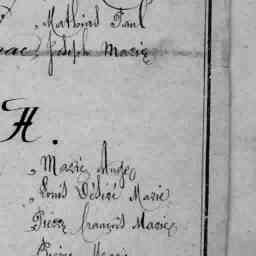 Mathias Paul
Joseph Marie
H.
Marie Ange
Louis Désiré Marie
Pierre François Marie